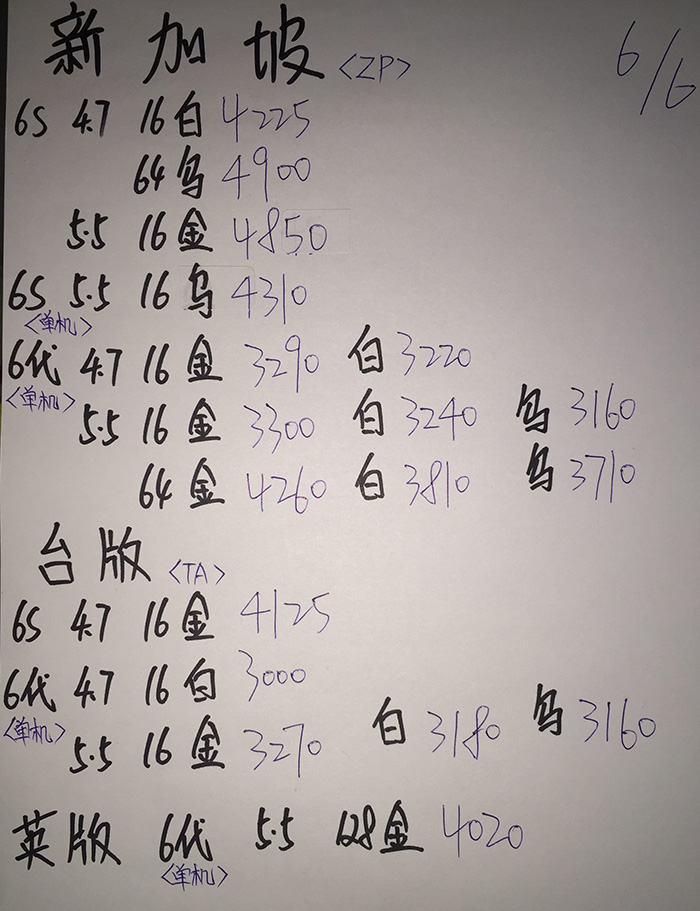 新加坡 <ZP> 6/6
6S 4.7 16白 4225
64乌 4900
5.5 16金 4850
6S 5.5 16乌 4310
<单机>
6代 4.7 16金 3290 白 3220
<单机>
5.5 16金 3300 白 3240 乌 3160
64金 4260 白 3810 乌 3710
台版 <TA>
6S 4.7 16金 4125
6代 4.7 16白 3000
<单机>
5.5 16金 3270 白 3180 乌 3160
英版 6代 5.5 128金 4020
<单机>